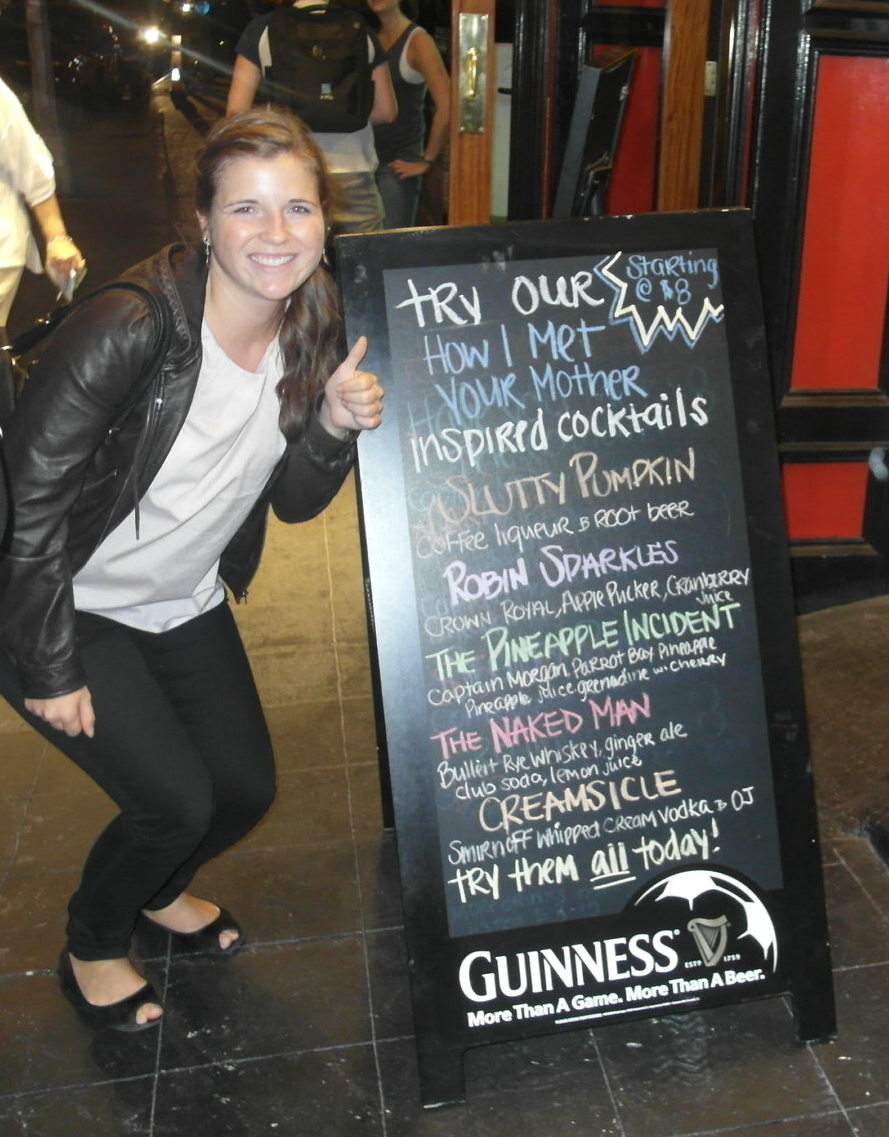 TRY OUR
STARTING
@ $8
HOW I MET
YOUR MOTHER
INSPIRED COCKTAILS
SLUTTY PUMPKIN
COFFEE LIQUEUR & ROOT BEER
ROBIN SPARKLES
CROWN ROYAL, APPLE PUCKER, CRANBERRY
JUICE
THE PINEAPPLE INCIDENT
CAPTAIN MORGAN PARROT BAY PINEAPPLE
PINEAPPLE JUICE GRENADINE W: CHERRY
THE NAKED MAN
BULLEIT RYE WHISKEY, GINGER ALE
CLUB SODA, LEMON JUICE
CREAMSICLE
SMIRNOFF WHIPPED CREAM VODKA & OJ
TRY THEM ALL TODAY!
GUINNESS
ESTD 1759
More Than A Game. More Than A Beer.